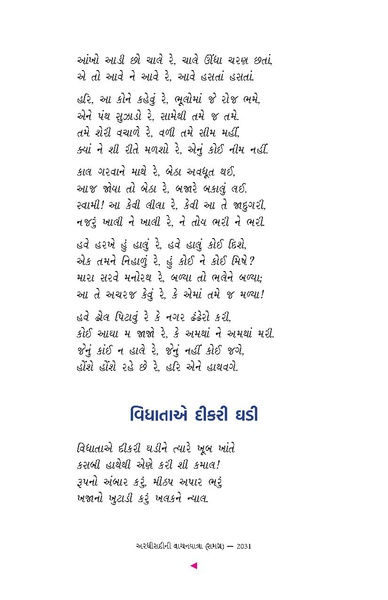 આંખો આડી છો ચાલે રે, ચાલે ઊંધા ચરણ છતાં,
એ તો આવે ને આવે રે, આવે હસતાં હસતાં.
હરિ, આ કોને કહેવું રે, ભૂલોમાં જે રોજ ભમે,
એને પંથ સુઝાડો રે, સામેથી તમે જ તમે.
તમે શેરી વચાળે રે, વળી તમે સીમ મહીં,
ક્યાં ને શી રીતે મળશો રે, એનું કોઈ નીમ નહીં.
કાલ ગરવાને માથે રે, બેઠા અવધૂત થઈ,
આજ જોયા તો બેઠા રે, બજારે બકાલું લઈ.
સ્વામી! આ કેવી લીલા રે, કેવી આ તે જાદુગરી,
નજરું ખાલી ને ખાલી રે, ને તોય ભરી ને ભરી.
હવે હરખે હું હાલું રે, હવે હાલું કોઈ દિશે,
એક તમને નિહાળું રે, હું કોઈ ને કોઈ મિષે?
મારા સરવે મનોરથ રે, બળ્યા તો ભલેને બળ્યા;
આ તે અચરજ કેવું રે, કે એમાં તમે જ મળ્યા!
હવે ઢોલ પિટાવું રે કે નગર ઢંઢેરો કરી,
કોઈ આઘા મ જાજો રે, કે અમથાં ને અમથાં મરી.
જેનું કાંઈ ન હાલે રે, જેનું નહીં કોઈ જગે,
હોંશે હોંશે રહે છે રે, હરિ એને હાથવગે.
વિધાતાએ દીકરી ઘડી
વિધાતાએ દીકરી ઘડીને ત્યારે ખૂબ ખાંતે
કસબી હાથેથી એણે કરી શી કમાલ!
રૂપનો અંબાર કરું, મીઠપ અપાર ભરું
ખજાનો ખુટાડી કરું ખલકને ન્યાલ.
અરધીસદીની વાચનયાત્રા (સમગ્ર) — 2031